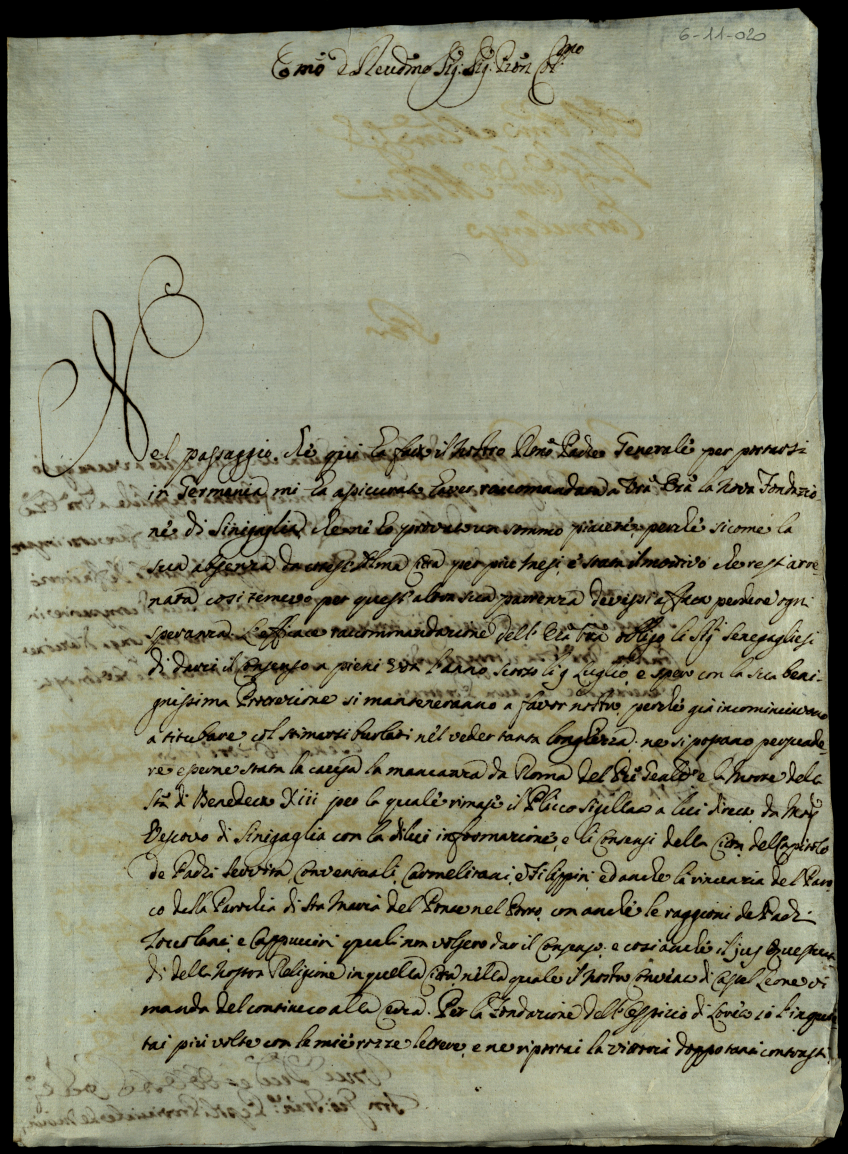 6-11-020
Emo e Revdmo Sig: Sig: Pron Col.mo
Nel passaggio, chè quì hà fatto il Nostro Rmo Padre Generalè per portarsi
in Germania, mi hà assicurato haver raccomandata a Vra Eza la Nova Fondazio
nè di Sinigaglia, che nè hò provato un sommo piacerè, perchè sicomè la
sua absenza da cotest'Alma Città per più Mesi, è stata il motivo chè restò arre=
nata così temevo per quest'altra sua partenza dovessi affatto perdere ogni
speranza. L'efficace raccommandazione dell' Eza Vra obligò li Sig.ri Senegagliesi
di darci il Consenso a pieni Voti l'anno scorso li 9 Luglio, e spero con la sua beni=
gnissima Protezione si manteneranno a favor nostro, perchè già incominciavano
a titubare col stimarsi burlati nèl veder tanta longhezza, ne si possano persuade=
re esserne stata la causa la mancanza da Roma del Pre Gnale e la Morte della
Stà di Benedetto XIII per la qualè rimasè il Plicco sigillato a lui diretto da Mosg
Vescovo di Sinigaglia con la di lui informazione, e li Consensi della Città, del Capitolo
de Padri Serviti, Conventuali, Carmelitani, e Filippini, ed anche la rinunzia del Paro=
co della Parochia di Sta Maria del Ponte nel Porto, con anchè le raggioni de Padri
Zoccolanti, e Cappuccini quali non volsero dar il Consenso, e così anchè il jus Questuan=
di della Nostra Religione in quella Città nella quale il Nostro Convento di Castel Leone vi
manda del continuo alla cerca. Per la Fondazione dell'Ospizio di Loreto io l'inquie=
tai più volte con le miè rozze lettere, e ne riportai la vittoria doppo tanti contrasti